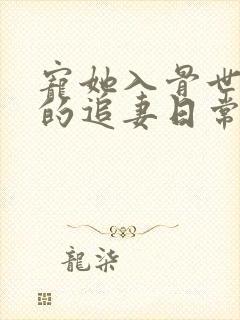 寵她入骨世
的追妻日常
龍柒